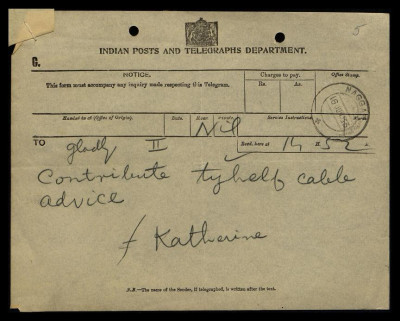 5
INDIAN POSTS AND TELEGRAPHS DEPARTMENT.
G.
NOTICE.
This form must accompany any inquiry made respecting this Telegram.
Charges to pay.
Rs. As.
Office Stamp.
Handed in at (Office of Origin). Date. Hour. Service Instructions. Words.
Nil
TO
Recd. here at 14 H. 52
gladly II
Contribute tyhelp cable
advice
Katherine
N.B.—The name of the Sender, if telegraphed, is written after the text.